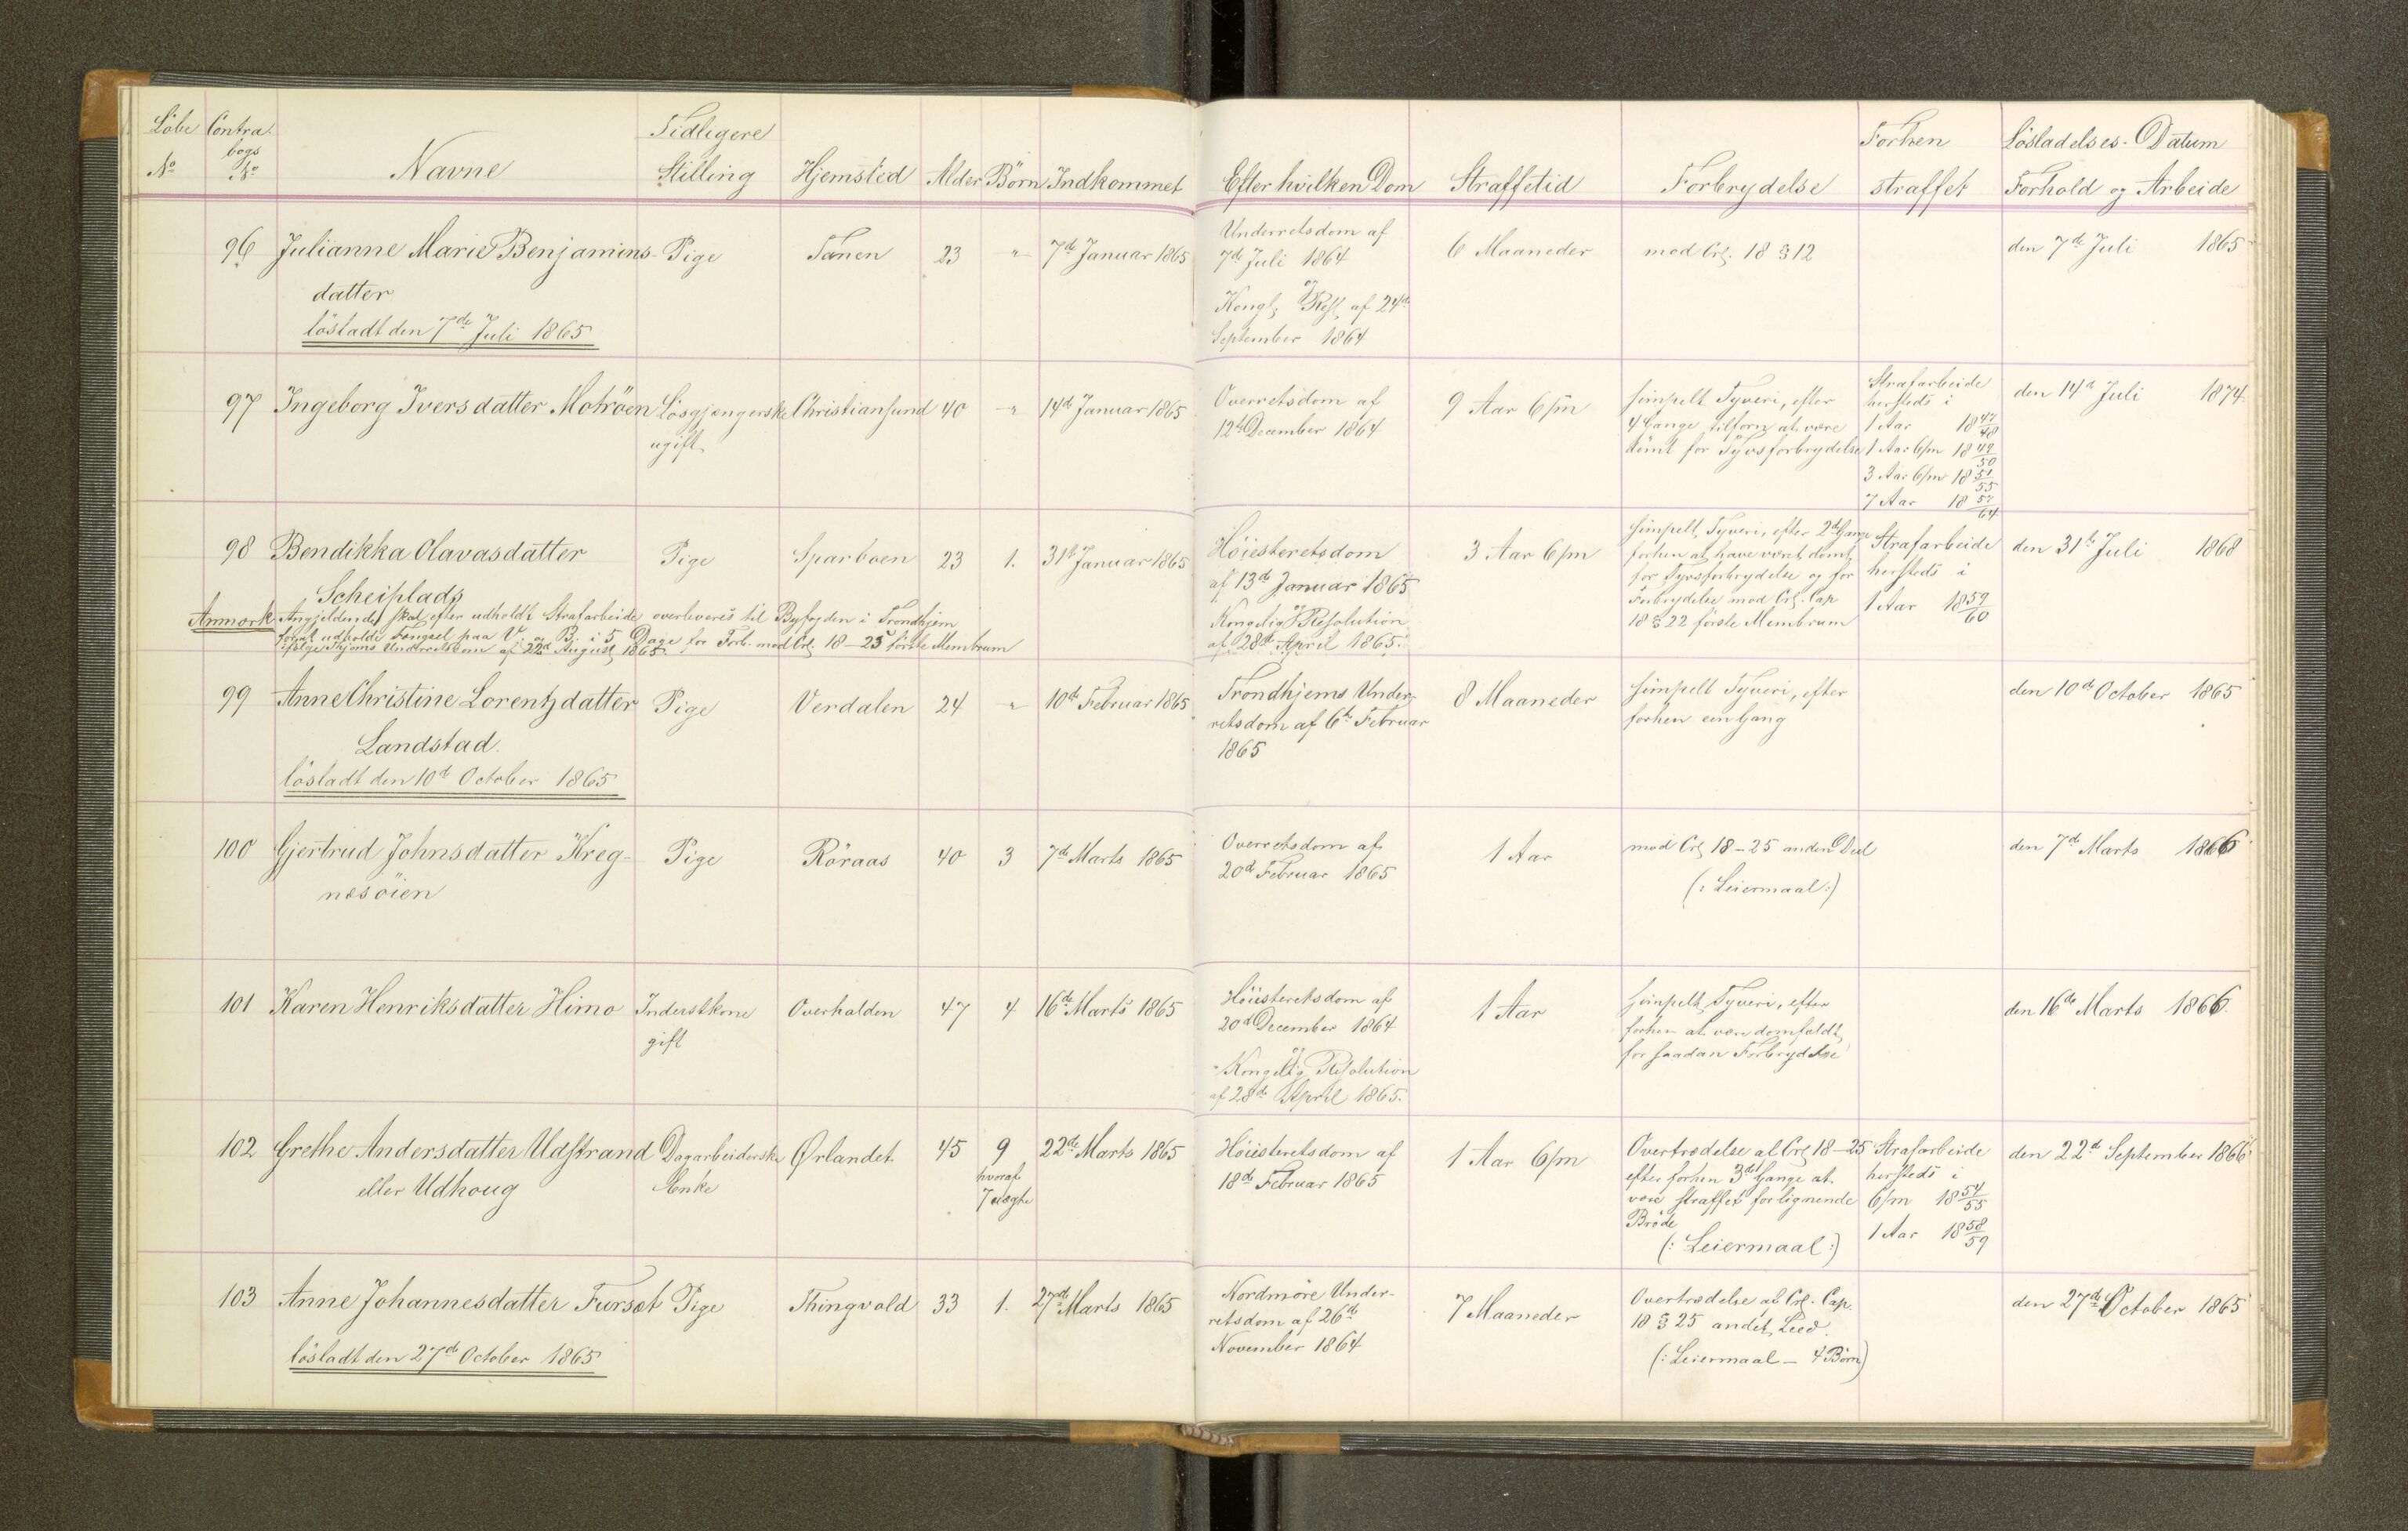 Löbe Contra- Tidligere Forhen Lösladelses-Datum
No bogs No Navne Stilling Hjemsted Alder Börn Indkommet Efter hvilken Dom Straffetid Forbrydelse straffet Forhold og Arbeide
96 Julianne Marie Benjamins- Pige Tanen 23 " 7de Januar 1865 Underretsdom af 6 Maaneder mod Crl. 18 § 12 den 7de Juli 1865
datter 7de Juli 1864
lösladt den 7de Juli 1865 og
Kongl. Resl. af 24de
September 1864
97 Ingeborg Iversdatter Motröen Lösgjængerske Christiansund 40 " 14de Januar 1865 Overretsdom af 9 Aar 6/m simpelt Tyveri, efter Strafarbeide den 14de Juli 1874.
ugift 12te December 1864 4 Gange tilforn at være hersteds i
dömt for Tyvsforbrydelse 1 Aar 18 47/48
1 Aar 6/m 18 49/50
3 Aar 6/m 18 51/55
7 Aar 18 57/64
98 Bendikka Olavasdatter Pige Sparboen 23 1. 31te Januar 1865 Höiesteretsdom 3 Aar 6/m simpelt Tyveri, efter 2de Gange Strafarbeide den 31te Juli 1868
Scheiplads af 13de Januar 1865 forhen at have været dömt hersteds i
og for Tyvsforbrydelse og for 1 Aar 18 59/60
Kongelig Resolution Forbrydelse mod Crl. Cap
af 28de April 1865. 18 § 22 förste Membrum
Anmærk. Angjeldende skal efter udholdt Strafarbeide overleveres til Byfogden i Trondhjem
for at udholde Fængsel paa V. og B. i 5 Dage for Forb. mod Crl. 18–25 förste Membrum
ifölge Thjems Underretsdom af 22de August 1865.
99 Anne Christine Lorentzdatter Pige Verdalen 24 " 10de Februar 1865 Trondhjems Under- 8 Maaneder simpelt Tyveri, efter den 10de October 1865
Landstad. retsdom af 6te Februar forhen ein Gang
lösladt den 10de October 1865 1865
100 Gjertrud Johnsdatter Kreg- Pige Röraas 40 3 7de Marts 1865 Overretsdom af 1 Aar mod Crl 18–25 anden Deel den 7de Marts 1866
næsöien 20de Februar 1865 (: Leiermaal :)
101 Karen Henriksdatter Himo Inderstkone Overhalden 47 4 16de Marts 1865 Höiesteretsdom af 1 Aar simpelt Tyveri, efter den 16de Marts 1866.
gift 20de December 1864 forhen at være domfældt
og for saadan Forbrydelse
Kongelig Resolution
af 28de April 1865.
102 Grethe Andersdatter Udstrand Dagarbeiderske Ørlandet 45 9 22de Marts 1865 Höiesteretsdom af 1 Aar 6/m Overtrædelse al Crl 18–25 Strafarbeide den 22de September 1866
eller Udhoug Enke hvoraf 18de Februar 1865 efter forhen 3de Gange at hersteds i
7 uægte være straffet for lignende 6/m 18 54/55
Bröde 1 Aar 18 58/59
(: Leiermaal :)
103 Anne Johannesdatter Furset Pige Thingvold 33 1. 27de Marts 1865 Nordmöre Under- 7 Maaneder Overtrædelse al Crl. Cap. den 27de October 1865
lösladt den 27de October 1865 retsdom af 26de 18 § 25 andet Leed.
November 1864 (: Leiermaal – 4 Börn)